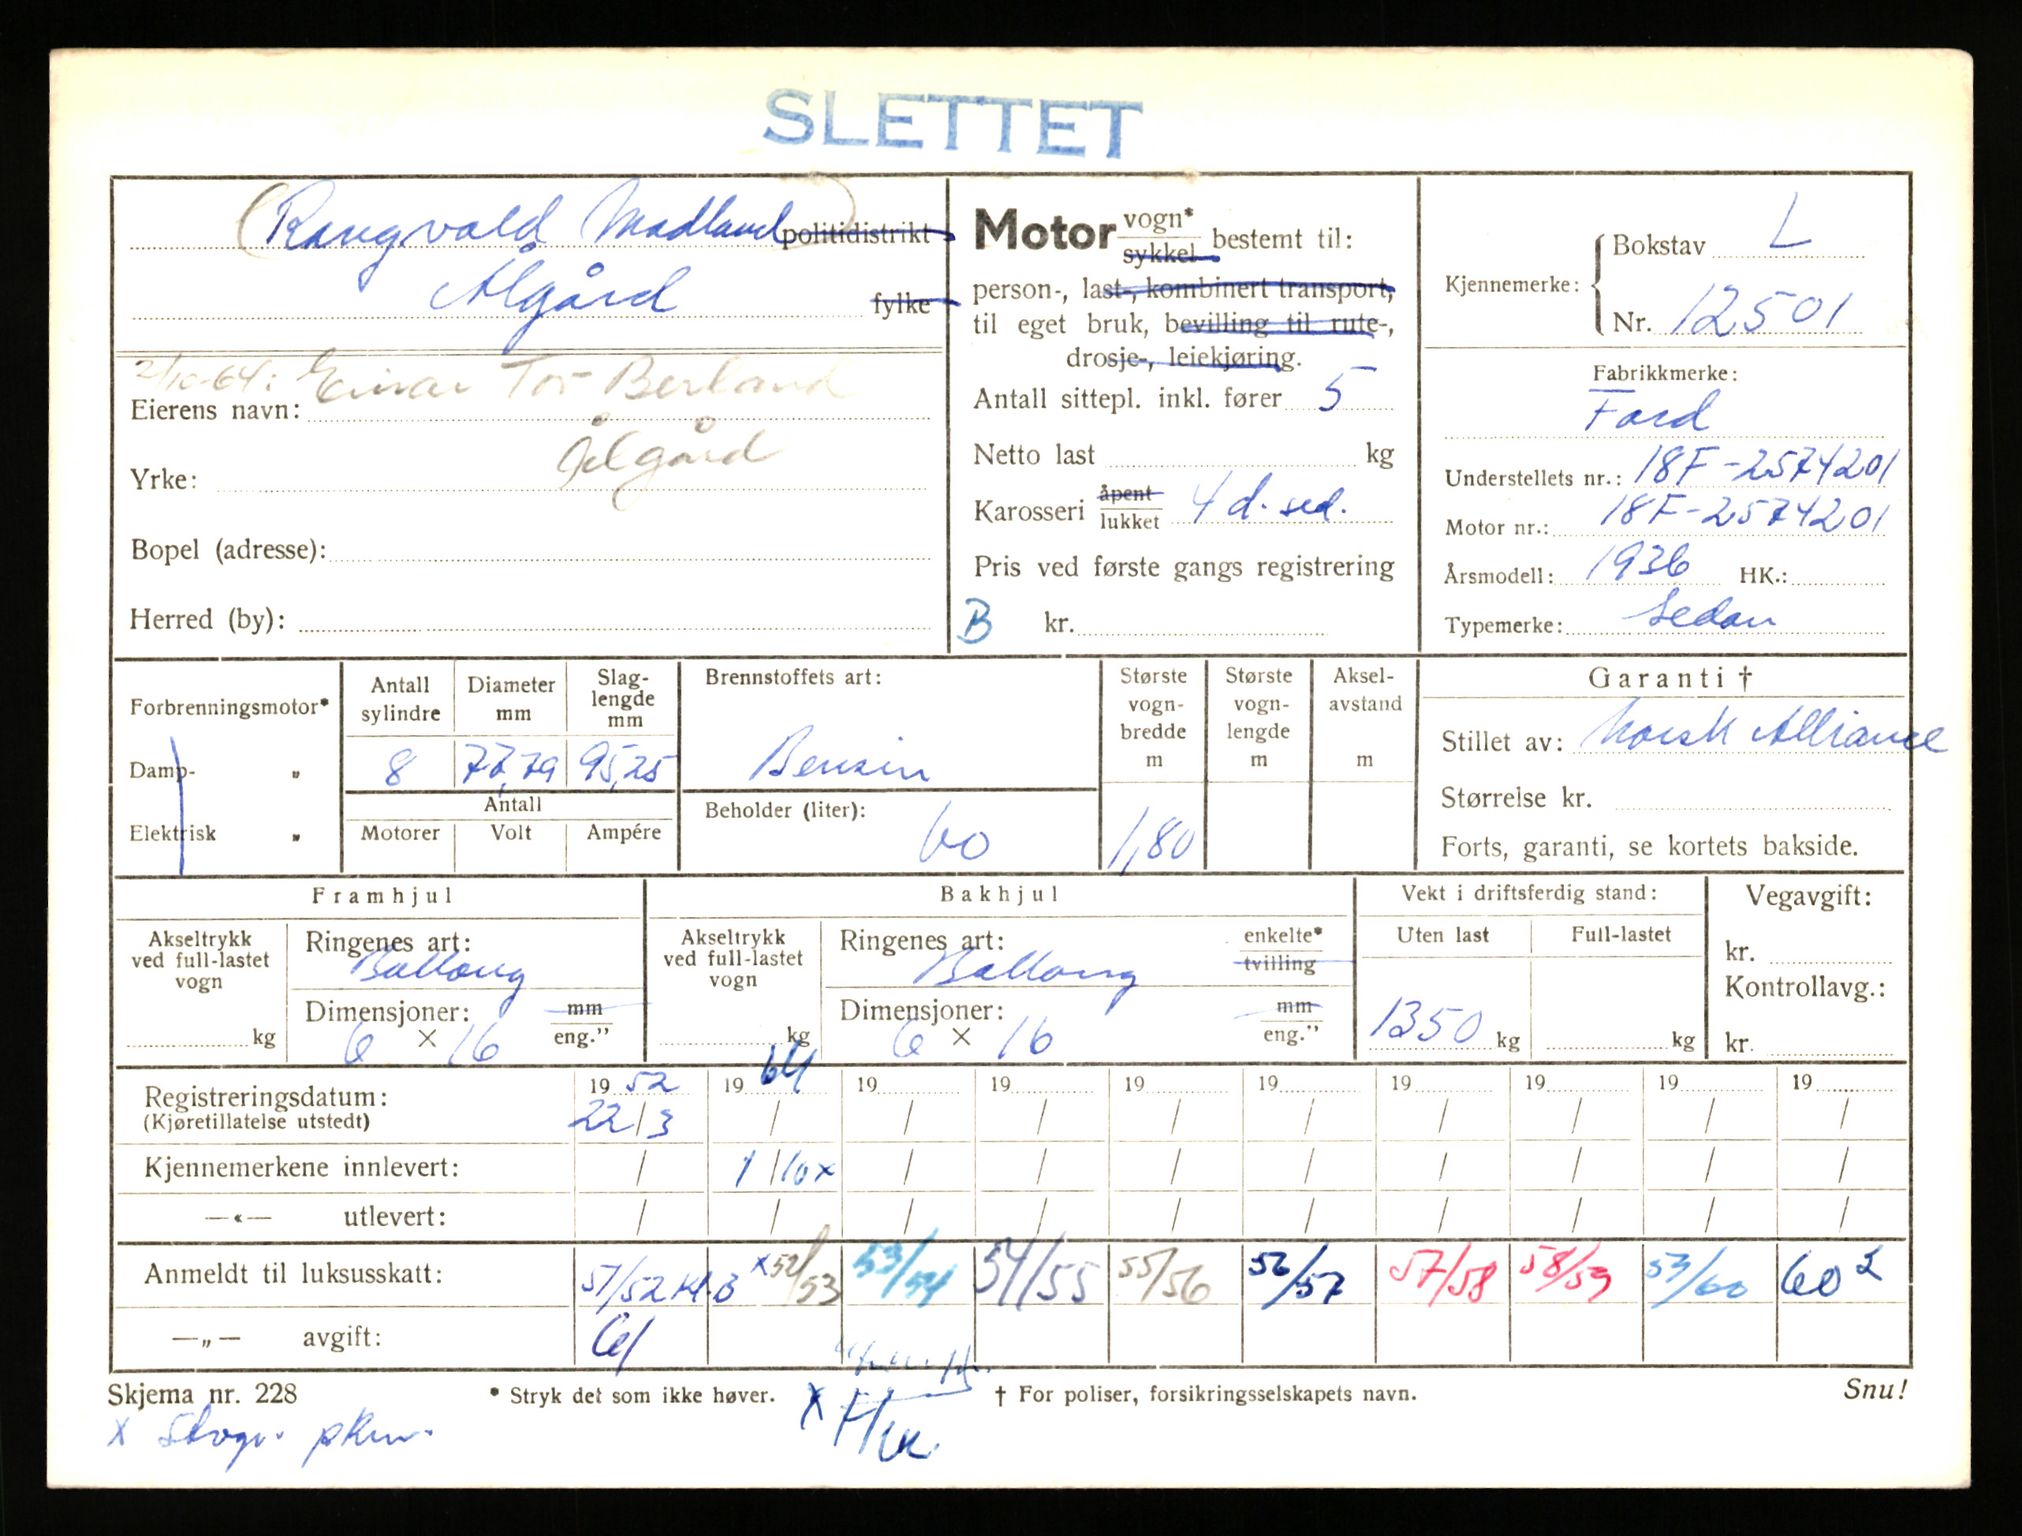 SLETTET
(Rangvald Madland) politidistrikt
Ålgård fylke
2/10-64: Einar Tor Berland
Eierens navn:
Ålgård
Yrke:
Bopel (adresse):
Herred (by):
Motor vogn* sykkel bestemt til:
person-, last-, kombinert transport,
til eget bruk, bevilling til rute-,
drosje-, leiekjøring.
Antall sittepl. inkl. fører 5
Netto last kg
Karosseri åpent lukket 4 d. sed.
Pris ved første gangs registrering
B kr.
Kjennemerke: Bokstav L
Nr. 12501
Fabrikkmerke:
Ford
Understellets nr.: 18F-2574201
Motor nr.: 18F-2574201
Årsmodell: 1936 HK.:
Typemerke: Sedan
Forbrenningsmotor*
Damp- „
Elektrisk „
Antall sylindre Diameter mm Slag-lengde mm
8 77,79 95,25
Antall
Motorer Volt Ampére
Brennstoffets art:
Bensin
Beholder (liter):
60
Største vogn-bredde m
1,80
Største vogn-lengde m
Aksel-avstand m
Garanti †
Stillet av: Norsk Alliance
Størrelse kr.
Forts, garanti, se kortets bakside.
Framhjul
Akseltrykk ved full-lastet vogn kg
Ringenes art:
Ballong
Dimensjoner: mm eng.”
6 × 16
Bakhjul
Akseltrykk ved full-lastet vogn kg
Ringenes art: enkelte* tvilling
Ballong
Dimensjoner: mm eng.”
6 × 16
Vekt i driftsferdig stand:
Uten last Full-lastet
1350 kg kg
Vegavgift:
kr.
Kontrollavg.:
kr.
19 52 19 64 19 19 19 19 19 19 19 19
Registreringsdatum: 22/3 / / / / / / / / /
(Kjøretillatelse utstedt)
Kjennemerkene innlevert: / 1/10 x / / / / / / / /
—«— utlevert: / / / / / / / / / /
Anmeldt til luksusskatt: 51/52 kl. B x 52/53 53/54 54/55 55/56 56/57 57/58 58/59 59/60 60 2
—„— avgift: 61
Skjema nr. 228 * Stryk det som ikke høver. † For poliser, forsikringsselskapets navn. Snu!
x
x